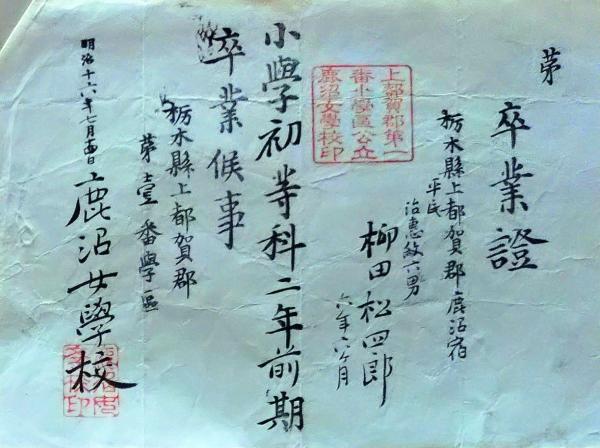 第
卒業證
栃木縣上都賀郡鹿沼宿
平民
治惠紋六男
柳田松四郎
六年六ヶ月
上都賀郡第一
番小學區公立
鹿沼女學校印
小學初等科二年前期
卒業候事
栃木縣上都賀郡
第壹番學區
鹿沼女學校
明治十六年七月